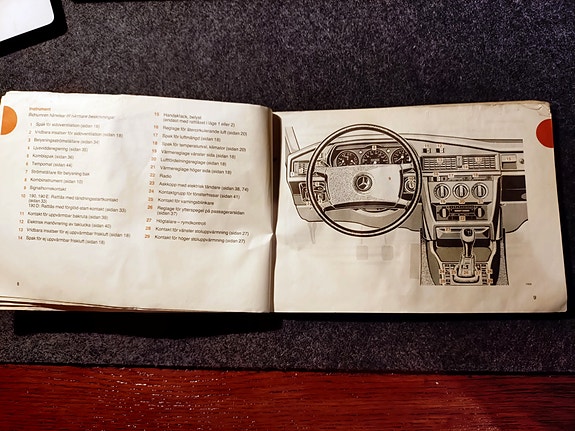 Instrument
1 Spak för sidoventilator (sidan 18)
2 Vridbara insatser för sidoventilator (sidan 18)
3 Belysningsomställare (sidan 34)
4 Ljusviddsreglering (sidan 35)
5 Kombispak (sidan 36)
6 Tempomat (sidan 44)
7 Strömställare för belysning bak
8 Kombiinstrument (sidan 10)
9 Signalhornskontakt
10 190, 190 E: Rattlås med tändningsstartkontakt
(sidan 33)
190 D: Rattlås med förglöd-start-kontakt (sidan 33)
11 Kontakt för uppvärmbar bakruta (sidan 39)
12 Elektrisk manövrering av taklucka (sidan 40)
13 Vridbara insatser för ej uppvärmbar friskluft (sidan 18)
14 Spak för ej uppvärmbar friskluft (sidan 18)
15 Handskfack, belyst
(endast med rattlåset i läge 1 eller 2)
16 Reglage för återcirkulerande luft (sidan 20)
17 Spak för luftmängd (sidan 18)
18 Spak för temperaturval, klimator (sidan 20)
19 Värmereglage vänster sida (sidan 18)
20 Luftfördelningsreglage (sidan 18)
21 Värmereglage höger sida (sidan 18)
22 Radio
23 Askkopp med elektrisk tändare (sidan 38, 74)
24 Kontaktgrupp för fönsterhissar (sidan 41)
25 Kontakt för varningsblinkers
26 Reglage för ytterspegel på passagerarsidan
(sidan 37)
27
28 Kontakt för vänster stoluppvärmning (sidan 27)
29 Kontakt för höger stoluppvärmning (sidan 27)
8
9